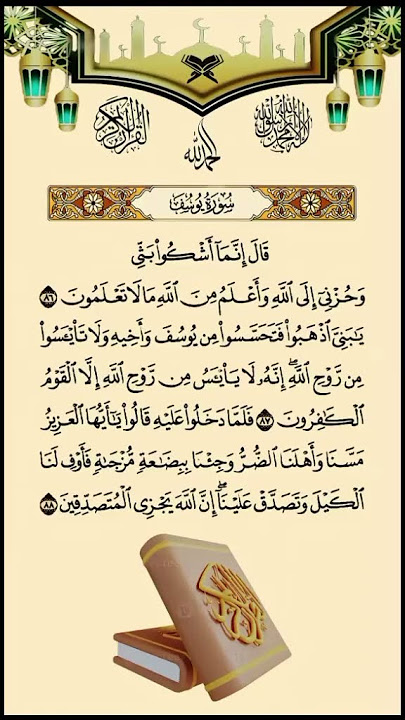 القرآن الكريم
الحمد لله
لا إله إلا الله محمد رسول الله
سُورَةُ يُوسُفَ
قَالَ إِنَّمَآ أَشْكُوا۟ بَثِّى
وَحُزْنِىٓ إِلَى ٱللَّهِ وَأَعْلَمُ مِنَ ٱللَّهِ مَا لَا تَعْلَمُونَ ٨٦
يَـٰبَنِىَّ ٱذْهَبُوا۟ فَتَحَسَّسُوا۟ مِن يُوسُفَ وَأَخِيهِ وَلَا تَا۟يْـَٔسُوا۟
مِن رَّوْحِ ٱللَّهِ ۖ إِنَّهُۥ لَا يَا۟يْـَٔسُ مِن رَّوْحِ ٱللَّهِ إِلَّا ٱلْقَوْمُ
ٱلْكَـٰفِرُونَ ٨٧ فَلَمَّا دَخَلُوا۟ عَلَيْهِ قَالُوا۟ يَـٰٓأَيُّهَا ٱلْعَزِيزُ
مَسَّنَا وَأَهْلَنَا ٱلضُّرُّ وَجِئْنَا بِبِضَـٰعَةٍ مُّزْجَىٰةٍ فَأَوْفِ لَنَا
ٱلْكَيْلَ وَتَصَدَّقْ عَلَيْنَآ ۖ إِنَّ ٱللَّهَ يَجْزِى ٱلْمُتَصَدِّقِينَ ٨٨